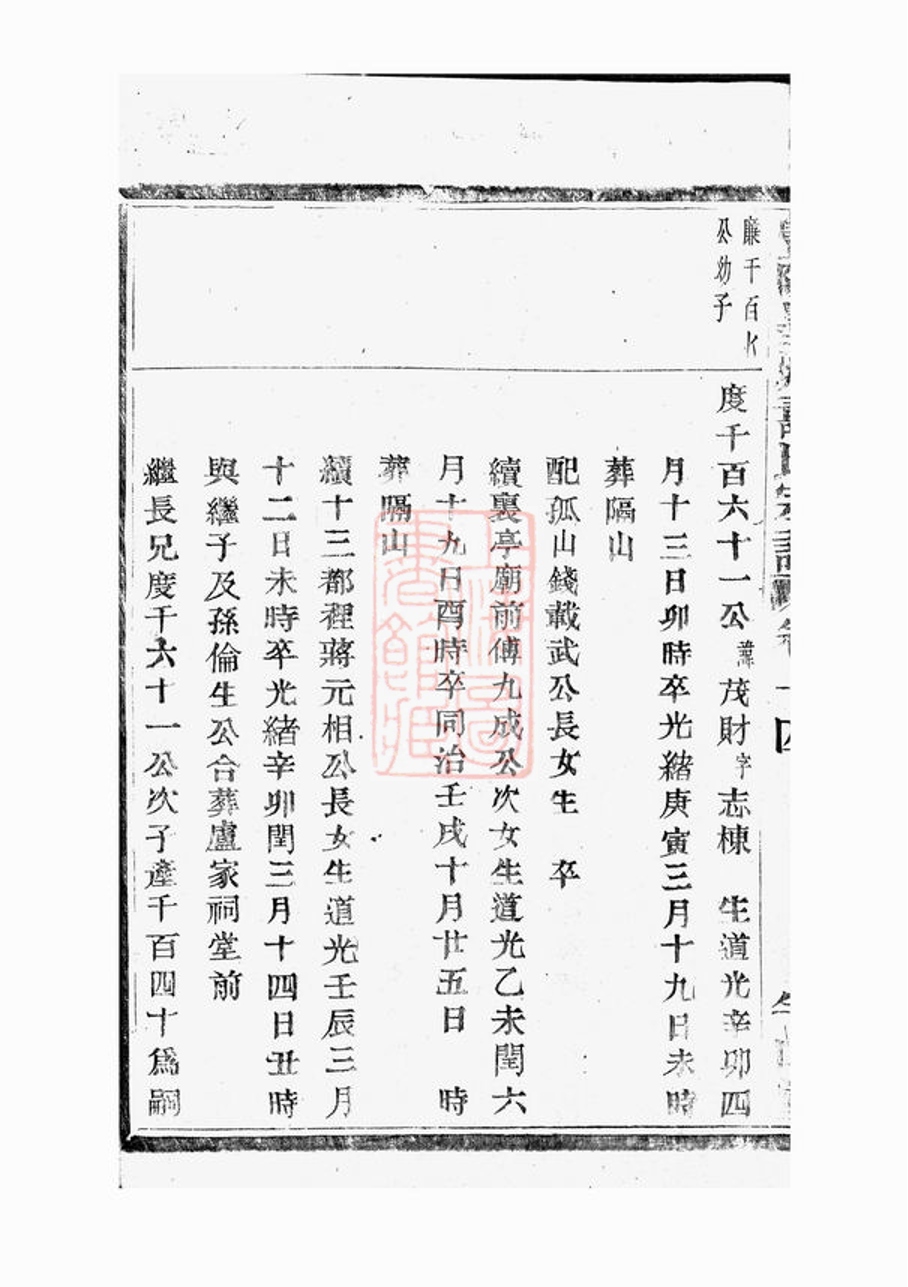 廉千百八
公幼子
度千百六十一公諱茂財字志棟 生道光辛卯四
月十三日卯時卒光緒庚寅三月十九日未時
葬隔山
配孤山錢載武公長女生 卒
續裏亭廟前傅九成公次女生道光乙未閏六
月十九日酉時卒同治壬戌十月廿五日 時
葬隔山
續十三都裡蔣元相公長女生道光壬辰三月
十二日未時卒光緒辛卯閏三月十四日丑時
與繼子及孫倫生公合葬盧家祠堂前
繼長兄度千六十一公次子產千百四十爲嗣